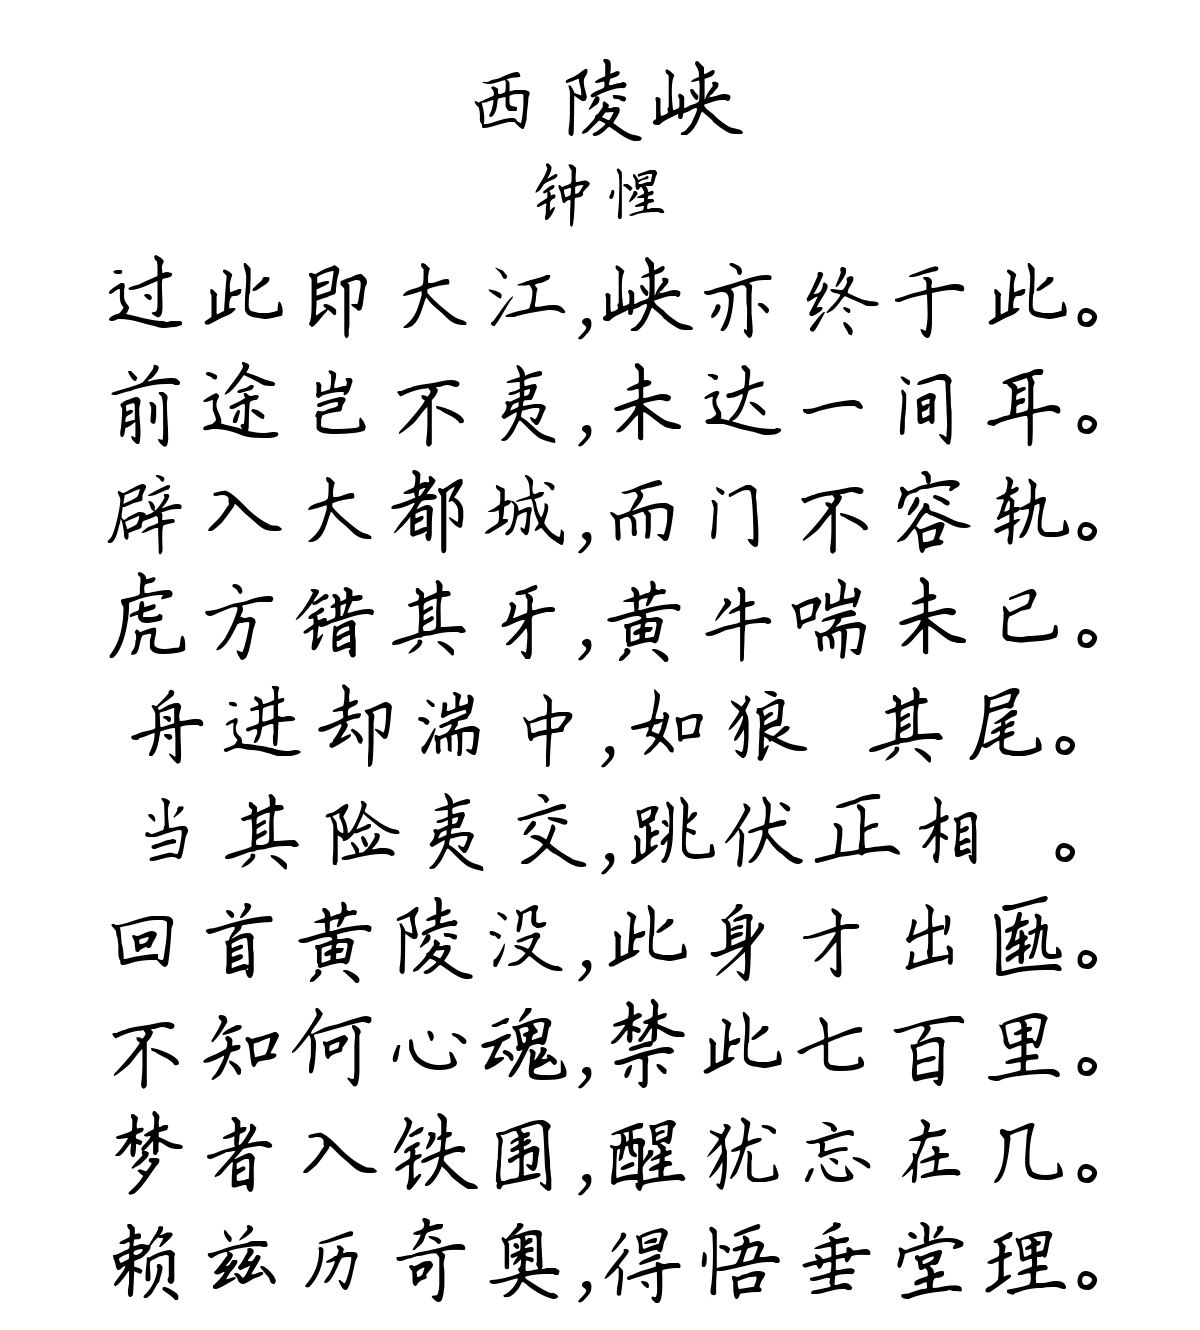 西陵峡
钟惺
过此即大江,峡亦终于此。
前途岂不夷,未达一间耳。
辟入大都城,而门不容轨。
虎方错其牙,黄牛喘未已。
舟进却湍中,如狼 其尾。
当其险夷交,跳伏正相 。
回首黄陵没,此身才出匭。
不知何心魂,禁此七百里。
梦者入铁围,醒犹忘在几。
赖兹历奇奥,得悟垂堂理。